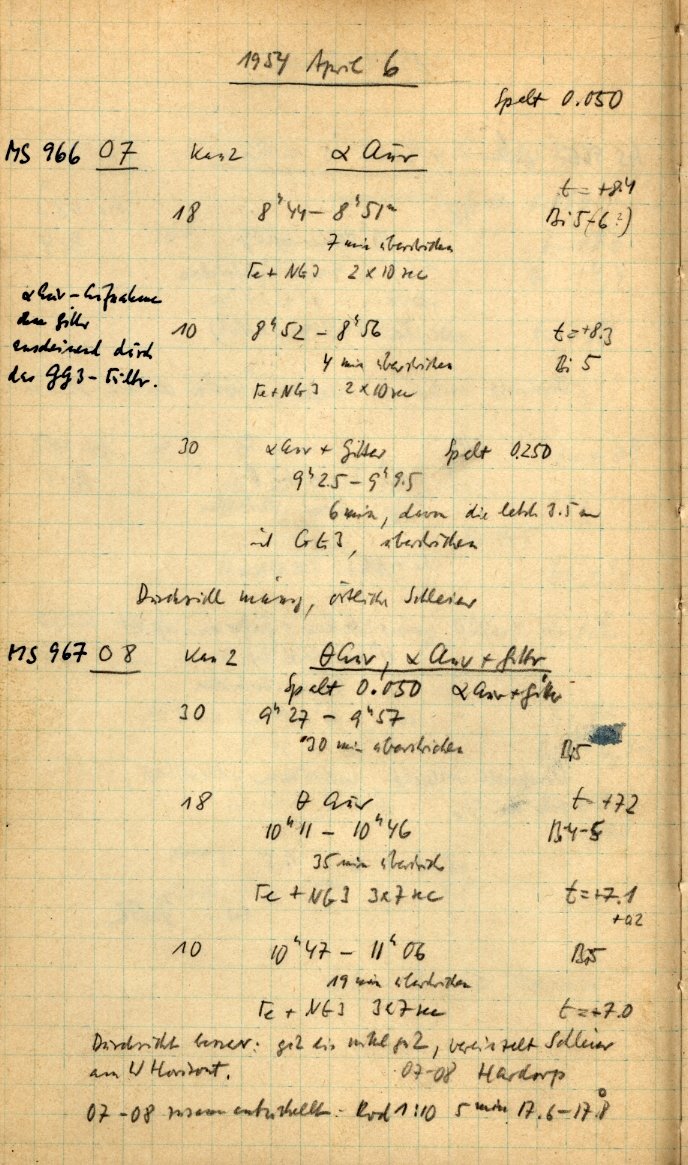 1954 April 6
Spalt 0.050
MS 966 07 Kan 2 α Aur
t = +8.4
18 8ʰ44 – 8ʰ51ᵐ Bi 5 (-6?)
7 min überstrichen
Fe + NG3 2 x 10 sec
α Aur - Aufnahme
ohne Gitter
anscheinend durch
das GG3 - Filter.
10 8ʰ52 – 8ʰ56 t = +8.3
4 min überstrichen Bi 5
Fe + NG3 2 x 10 sec
30 α Aur + Gitter Spalt 0.250
9ʰ2.5 – 9ʰ9.5
6 min, davon die letzten 3.5 m
mit GG3, überstrichen
Durchsicht mässig, örtliche Schleier
MS 967 08 Kan 2 θ Aur, α Aur + Gitter
Spalt 0.050 α Aur + Gitter
30 9ʰ27 – 9ʰ57
30 min überstrichen Bi 5
18 θ Aur t = +7.2
10ʰ11 – 10ʰ46 Bi 4-5
35 min überstrich
Fe + NG3 3x7 sec t = +7.1
+0.2
10 10ʰ47 – 11ʰ06 Bi 5
19 min überstrichen
Fe + NG3 3x7 sec t = +7.0
Durchsicht besser: gut bis mittelgut, vereinzelt Schleier
am W Horizont. 07-08 Hardorp
07-08 zusammen entwickelt: Rod 1:10 5 min 17.6 – 17.8°